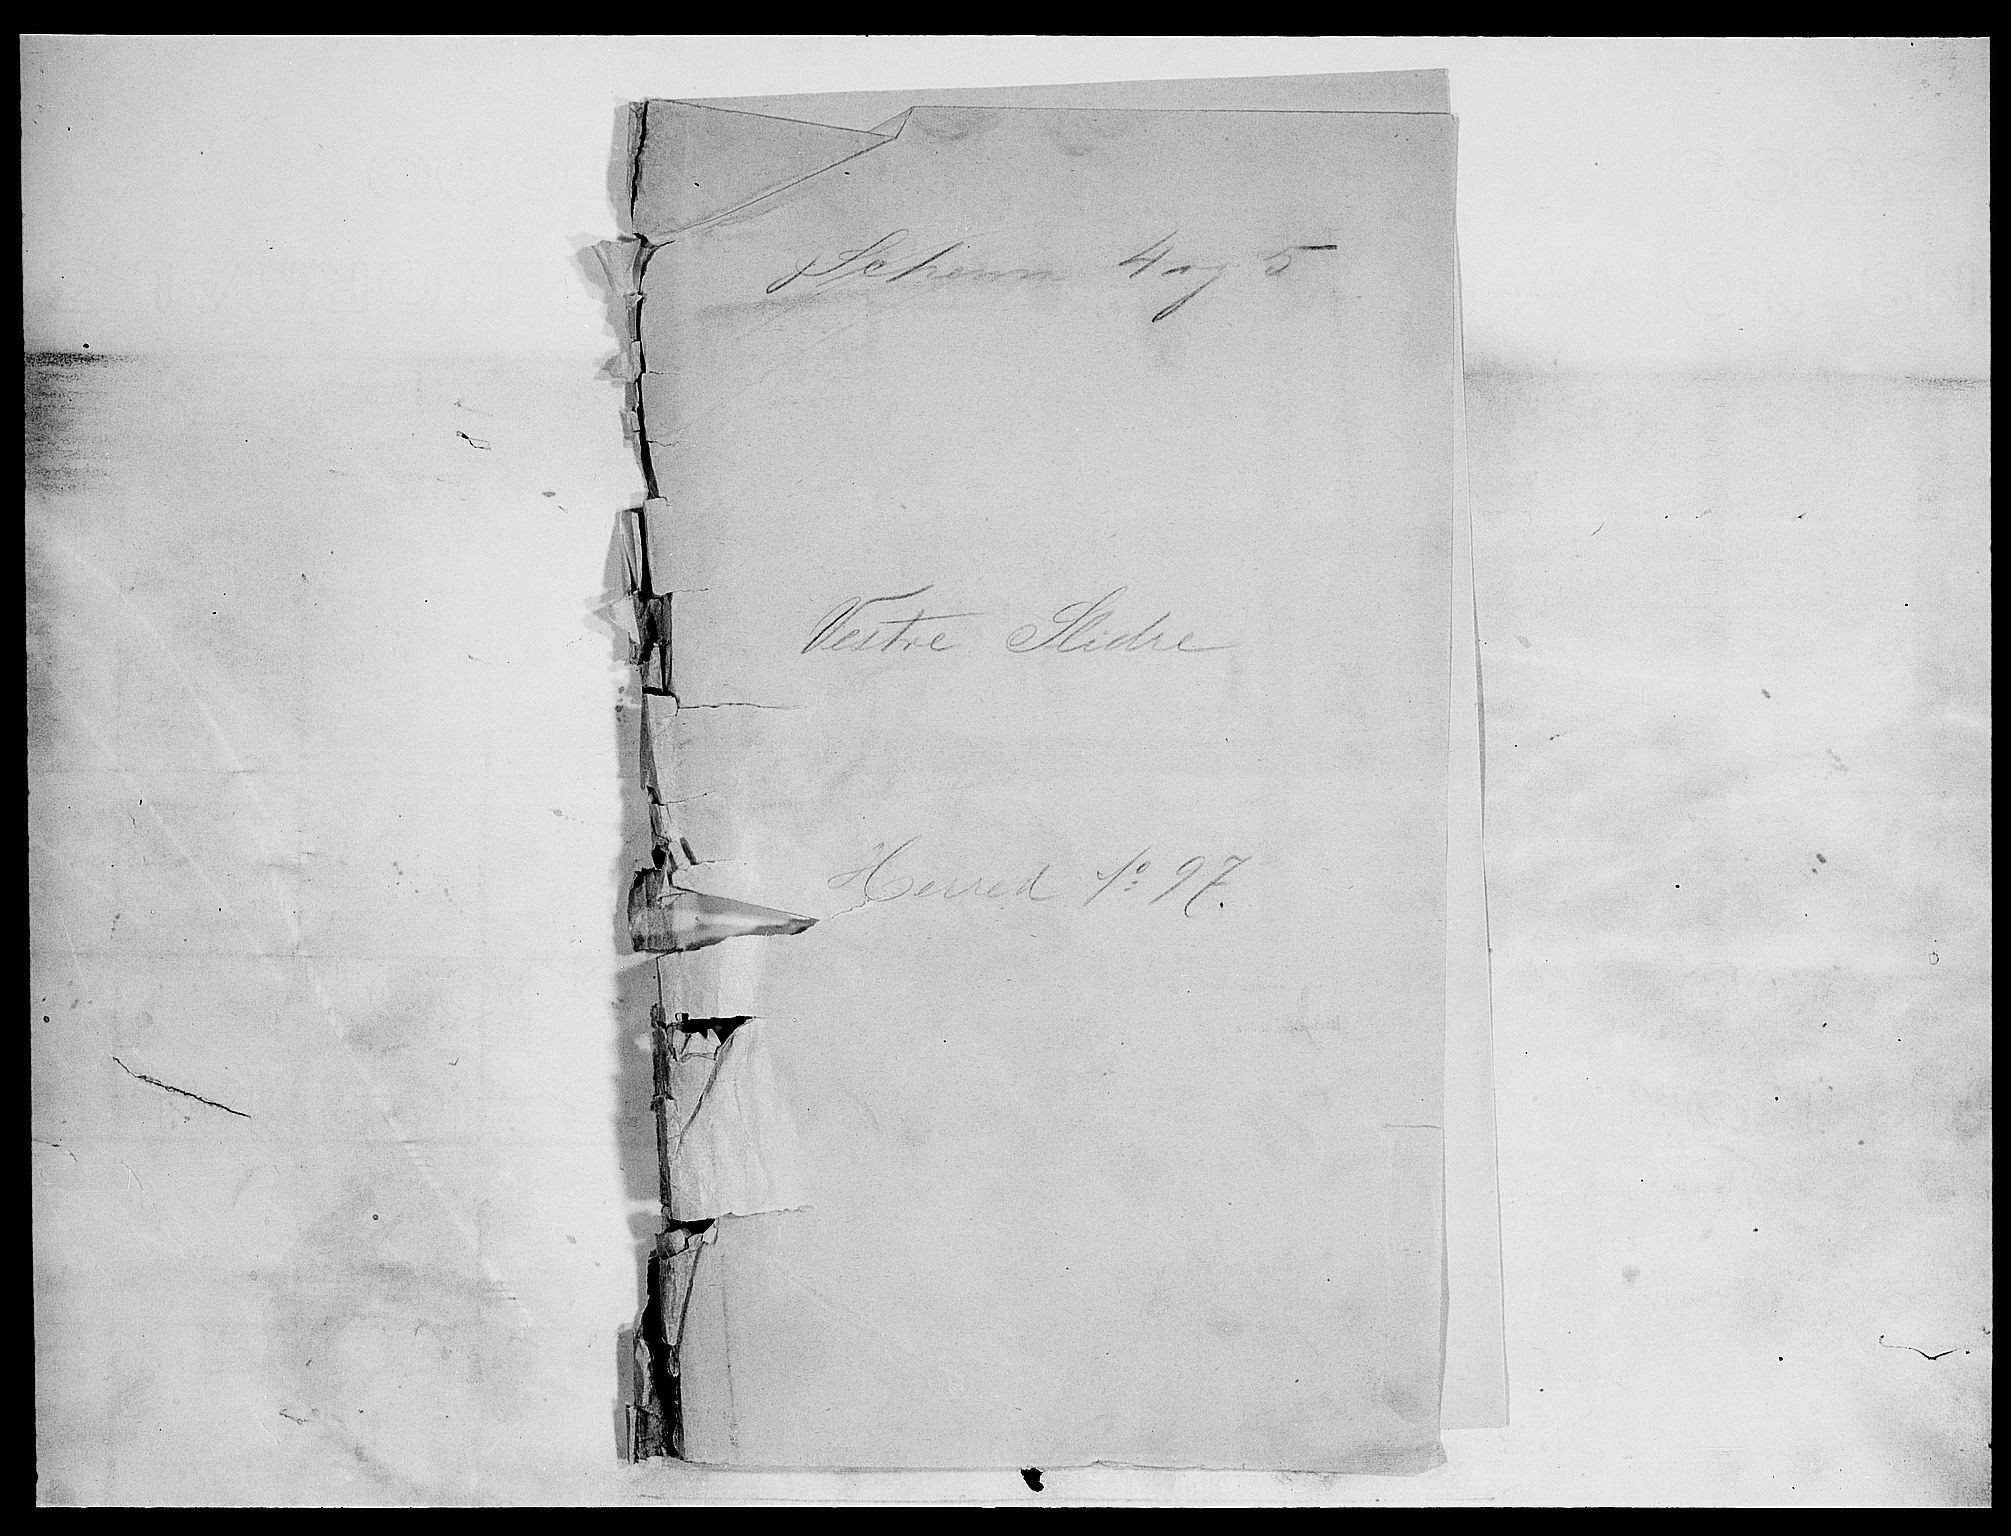 Schema 4 og 5
Vestre Slidre
Herred No 97.